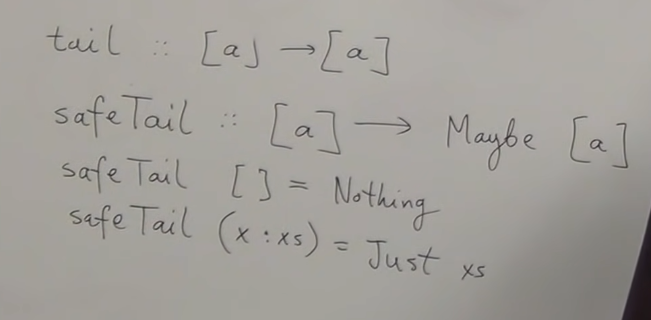 tail :: [a] → [a]
safeTail :: [a] → Maybe [a]
safeTail [] = Nothing
safeTail (x:xs) = Just xs